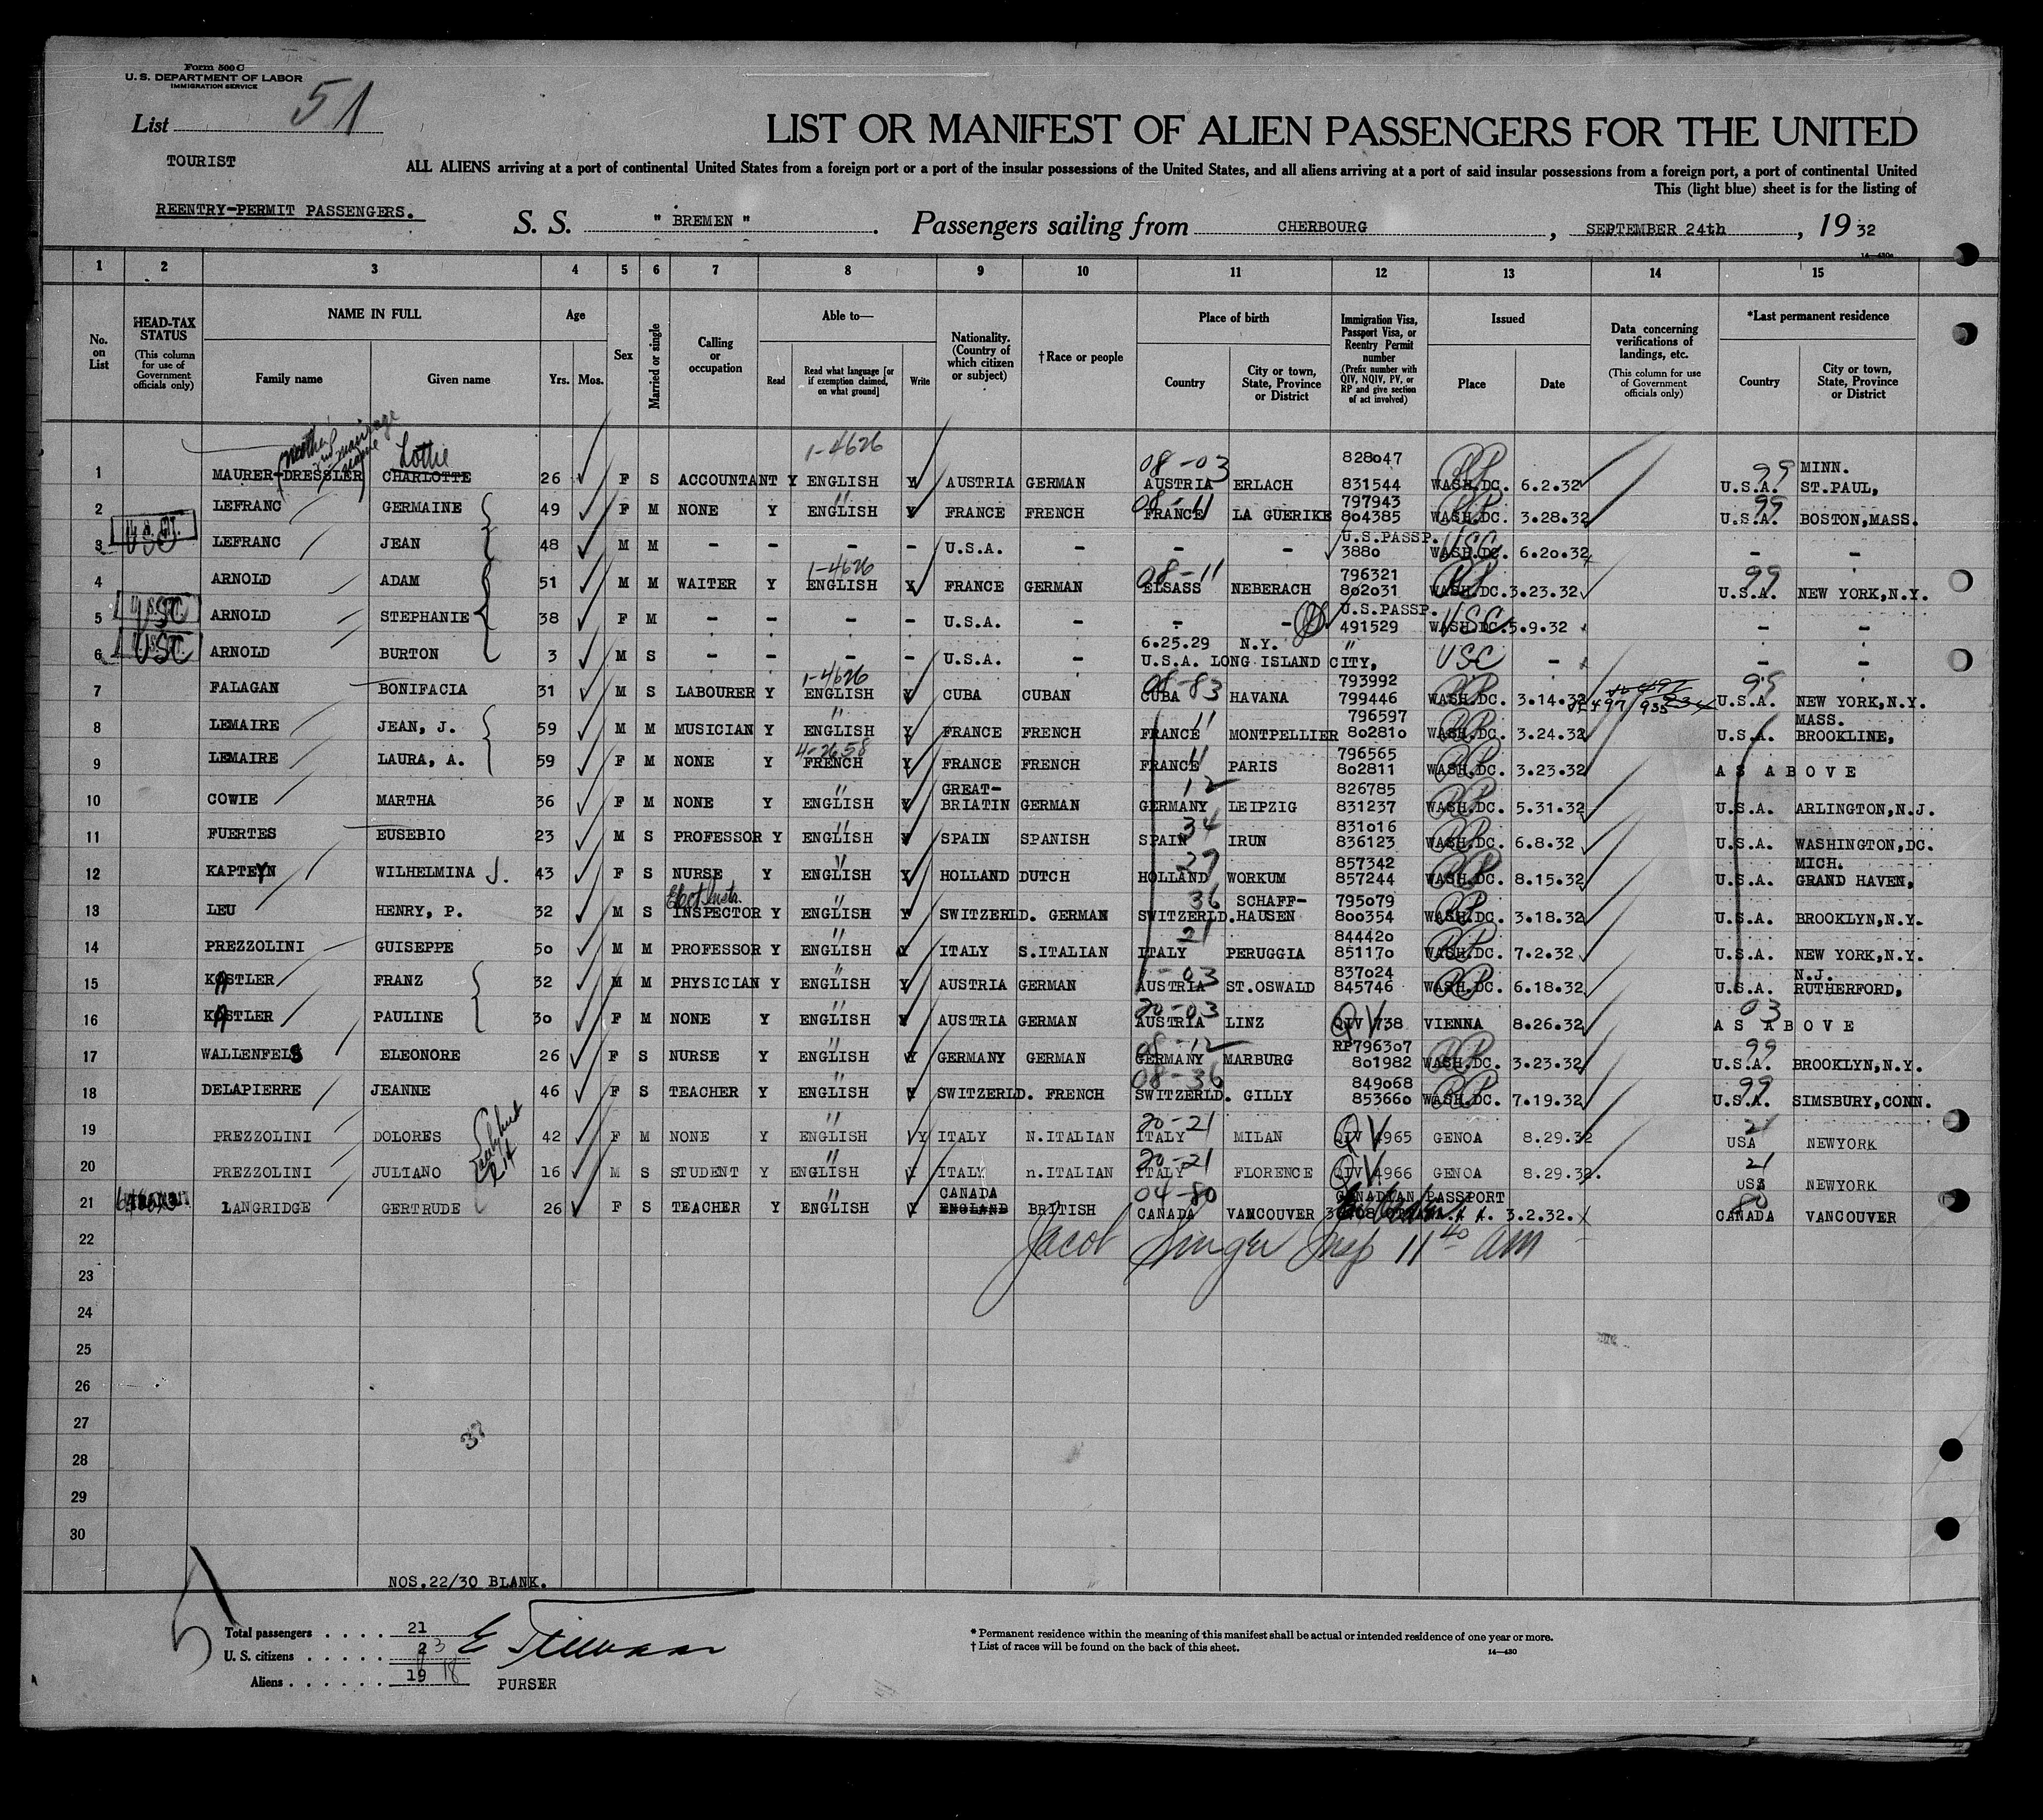 Form 500 C
U. S. DEPARTMENT OF LABOR
IMMIGRATION SERVICE
List 51
LIST OR MANIFEST OF ALIEN PASSENGERS FOR THE UNITED
TOURIST
ALL ALIENS arriving at a port of continental United States from a foreign port or a port of the insular possessions of the United States, and all aliens arriving at a port of said insular possessions from a foreign port, a port of continental United
This (light blue) sheet is for the listing of
REENTRY-PERMIT PASSENGERS.
S. S. " BREMEN " . Passengers sailing from CHERBOURG , SEPTEMBER 24th , 19 32
14—430a
1 2 3 4 5 6 7 8 9 10 11 12 13 14 15
No. on List
HEAD-TAX STATUS (This column for use of Government officials only)
NAME IN FULL
Family name
Given name
Age
Yrs. Mos.
Sex
Married or single
Calling or occupation
Able to—
Read
Read what language [or if exemption claimed, on what ground]
Write
Nationality. (Country of which citizen or subject)
†Race or people
Place of birth
Country
City or town, State, Province or District
Immigration Visa, Passport Visa, or Reentry Permit number (Prefix number with QIV, NQIV, PV, or RP and give section of act involved)
Issued
Place
Date
Data concerning verifications of landings, etc. (This column for use of Government officials only)
*Last permanent residence
Country
City or town, State, Province or District
Lottie 1-4626 08-03 828047 99 MINN.
1 MAURER-DRESSLER CHARLOTTE 26 F S ACCOUNTANT Y ENGLISH Y AUSTRIA GERMAN AUSTRIA ERLACH 831544 RP WASH.DC. 6.2.32 U.S.A. ST.PAUL,
" 08-11 797943 99
2 LEFRANC GERMAINE 49 F M NONE Y ENGLISH Y FRANCE FRENCH FRANCE LA GUERIKE 804385 RP WASH.DC. 3.28.32 U.S.A. BOSTON,MASS.
U.S.PASSP.
3 USC LEFRANC JEAN 48 M M - - - - U.S.A. - - - 3880 USC WASH.DC. 6.20.32 - -
1-4626 08-11 796321 99
4 ARNOLD ADAM 51 M M WAITER Y ENGLISH Y FRANCE GERMAN ELSASS NEBERACH 802031 RP WASH.DC. 3.23.32 U.S.A. NEW YORK,N.Y.
U.S.PASSP.
5 USC ARNOLD STEPHANIE 38 F M - - - - U.S.A. - - - 491529 USC WASH.DC. 5.9.32 - -
6.25.29 N.Y. "
6 USC ARNOLD BURTON 3 M S - - - - U.S.A. - U.S.A. LONG ISLAND CITY, USC - - -
1-4626 08-83 793992 99
7 FALAGAN BONIFACIA 31 M S LABOURER Y ENGLISH Y CUBA CUBAN CUBA HAVANA 799446 RP WASH.DC. 3.14.32 U.S.A. NEW YORK,N.Y.
" 11 796597 MASS.
8 LEMAIRE JEAN, J. 59 M M MUSICIAN Y ENGLISH Y FRANCE FRENCH FRANCE MONTPELLIER 802810 RP WASH.DC. 3.24.32 U.S.A. BROOKLINE,
4-2658 11 796565
9 LEMAIRE LAURA, A. 59 F M NONE Y FRENCH Y FRANCE FRENCH FRANCE PARIS 802811 RP WASH.DC. 3.23.32 AS ABOVE
" GREAT- 12 826785
10 COWIE MARTHA 36 F M NONE Y ENGLISH Y BRIATIN GERMAN GERMANY LEIPZIG 831237 RP WASH.DC. 5.31.32 U.S.A. ARLINGTON,N.J.
" 34 831016
11 FUERTES EUSEBIO 23 M S PROFESSOR Y ENGLISH Y SPAIN SPANISH SPAIN IRUN 836123 RP WASH.DC. 6.8.32 U.S.A. WASHINGTON,DC.
" 27 857342 MICH.
12 KAPTEYN WILHELMINA J. 43 F S NURSE Y ENGLISH Y HOLLAND DUTCH HOLLAND WORKUM 857244 RP WASH.DC. 8.15.32 U.S.A. GRAND HAVEN,
" 36 SCHAFF- 795079
13 LEU HENRY, P. 32 M S INSPECTOR Y ENGLISH Y SWITZERLD. GERMAN SWITZERLD. HAUSEN 800354 RP WASH.DC. 3.18.32 U.S.A. BROOKLYN,N.Y.
" 21 844420
14 PREZZOLINI GUISEPPE 50 M M PROFESSOR Y ENGLISH Y ITALY S.ITALIAN ITALY PERUGGIA 851170 RP WASH.DC. 7.2.32 U.S.A. NEW YORK,N.Y.
" 03 837024 N.J.
15 KASTLER FRANZ 32 M M PHYSICIAN Y ENGLISH Y AUSTRIA GERMAN AUSTRIA ST.OSWALD 845746 RP WASH.DC. 6.18.32 U.S.A. RUTHERFORD,
" 20-03 03
16 KASTLER PAULINE 30 F M NONE Y ENGLISH Y AUSTRIA GERMAN AUSTRIA LINZ QIV 738 VIENNA 8.26.32 AS ABOVE
" 08-12 RP796307 99
17 WALLENFELS ELEONORE 26 F S NURSE Y ENGLISH Y GERMANY GERMAN GERMANY MARBURG 801982 RP WASH.DC. 3.23.32 U.S.A. BROOKLYN,N.Y.
" 08-36 849068 99
18 DELAPIERRE JEANNE 46 F S TEACHER Y ENGLISH Y SWITZERLD. FRENCH SWITZERLD. GILLY 853660 RP WASH.DC. 7.19.32 U.S.A. SIMSBURY,CONN.
" 20-21 21
19 PREZZOLINI DOLORES 42 F M NONE Y ENGLISH Y ITALY N.ITALIAN ITALY MILAN QIV 4965 GENOA 8.29.32 USA NEWYORK
" 20-21 21
20 PREZZOLINI JULIANO 16 M S STUDENT Y ENGLISH Y ITALY n.ITALIAN ITALY FLORENCE QIV 4966 GENOA 8.29.32. USA NEWYORK
" CANADA 04-80 CANADIAN PASSPORT 80
21 TRANSIT LANGRIDGE GERTRUDE 26 F S TEACHER Y ENGLISH Y ENGLAND BRITISH CANADA VANCOUVER 3.2.32. CANADA VANCOUVER
22 Jacob Singer Insp 11 40 am
23
24
25
26
27
28
29
30
NOS.22/30 BLANK.
Total passengers . . . . 21
U. S. citizens . . . . . 2 3
Aliens . . . . . . 19 18
PURSER
* Permanent residence within the meaning of this manifest shall be actual or intended residence of one year or more.
† List of races will be found on the back of this sheet.
14—430